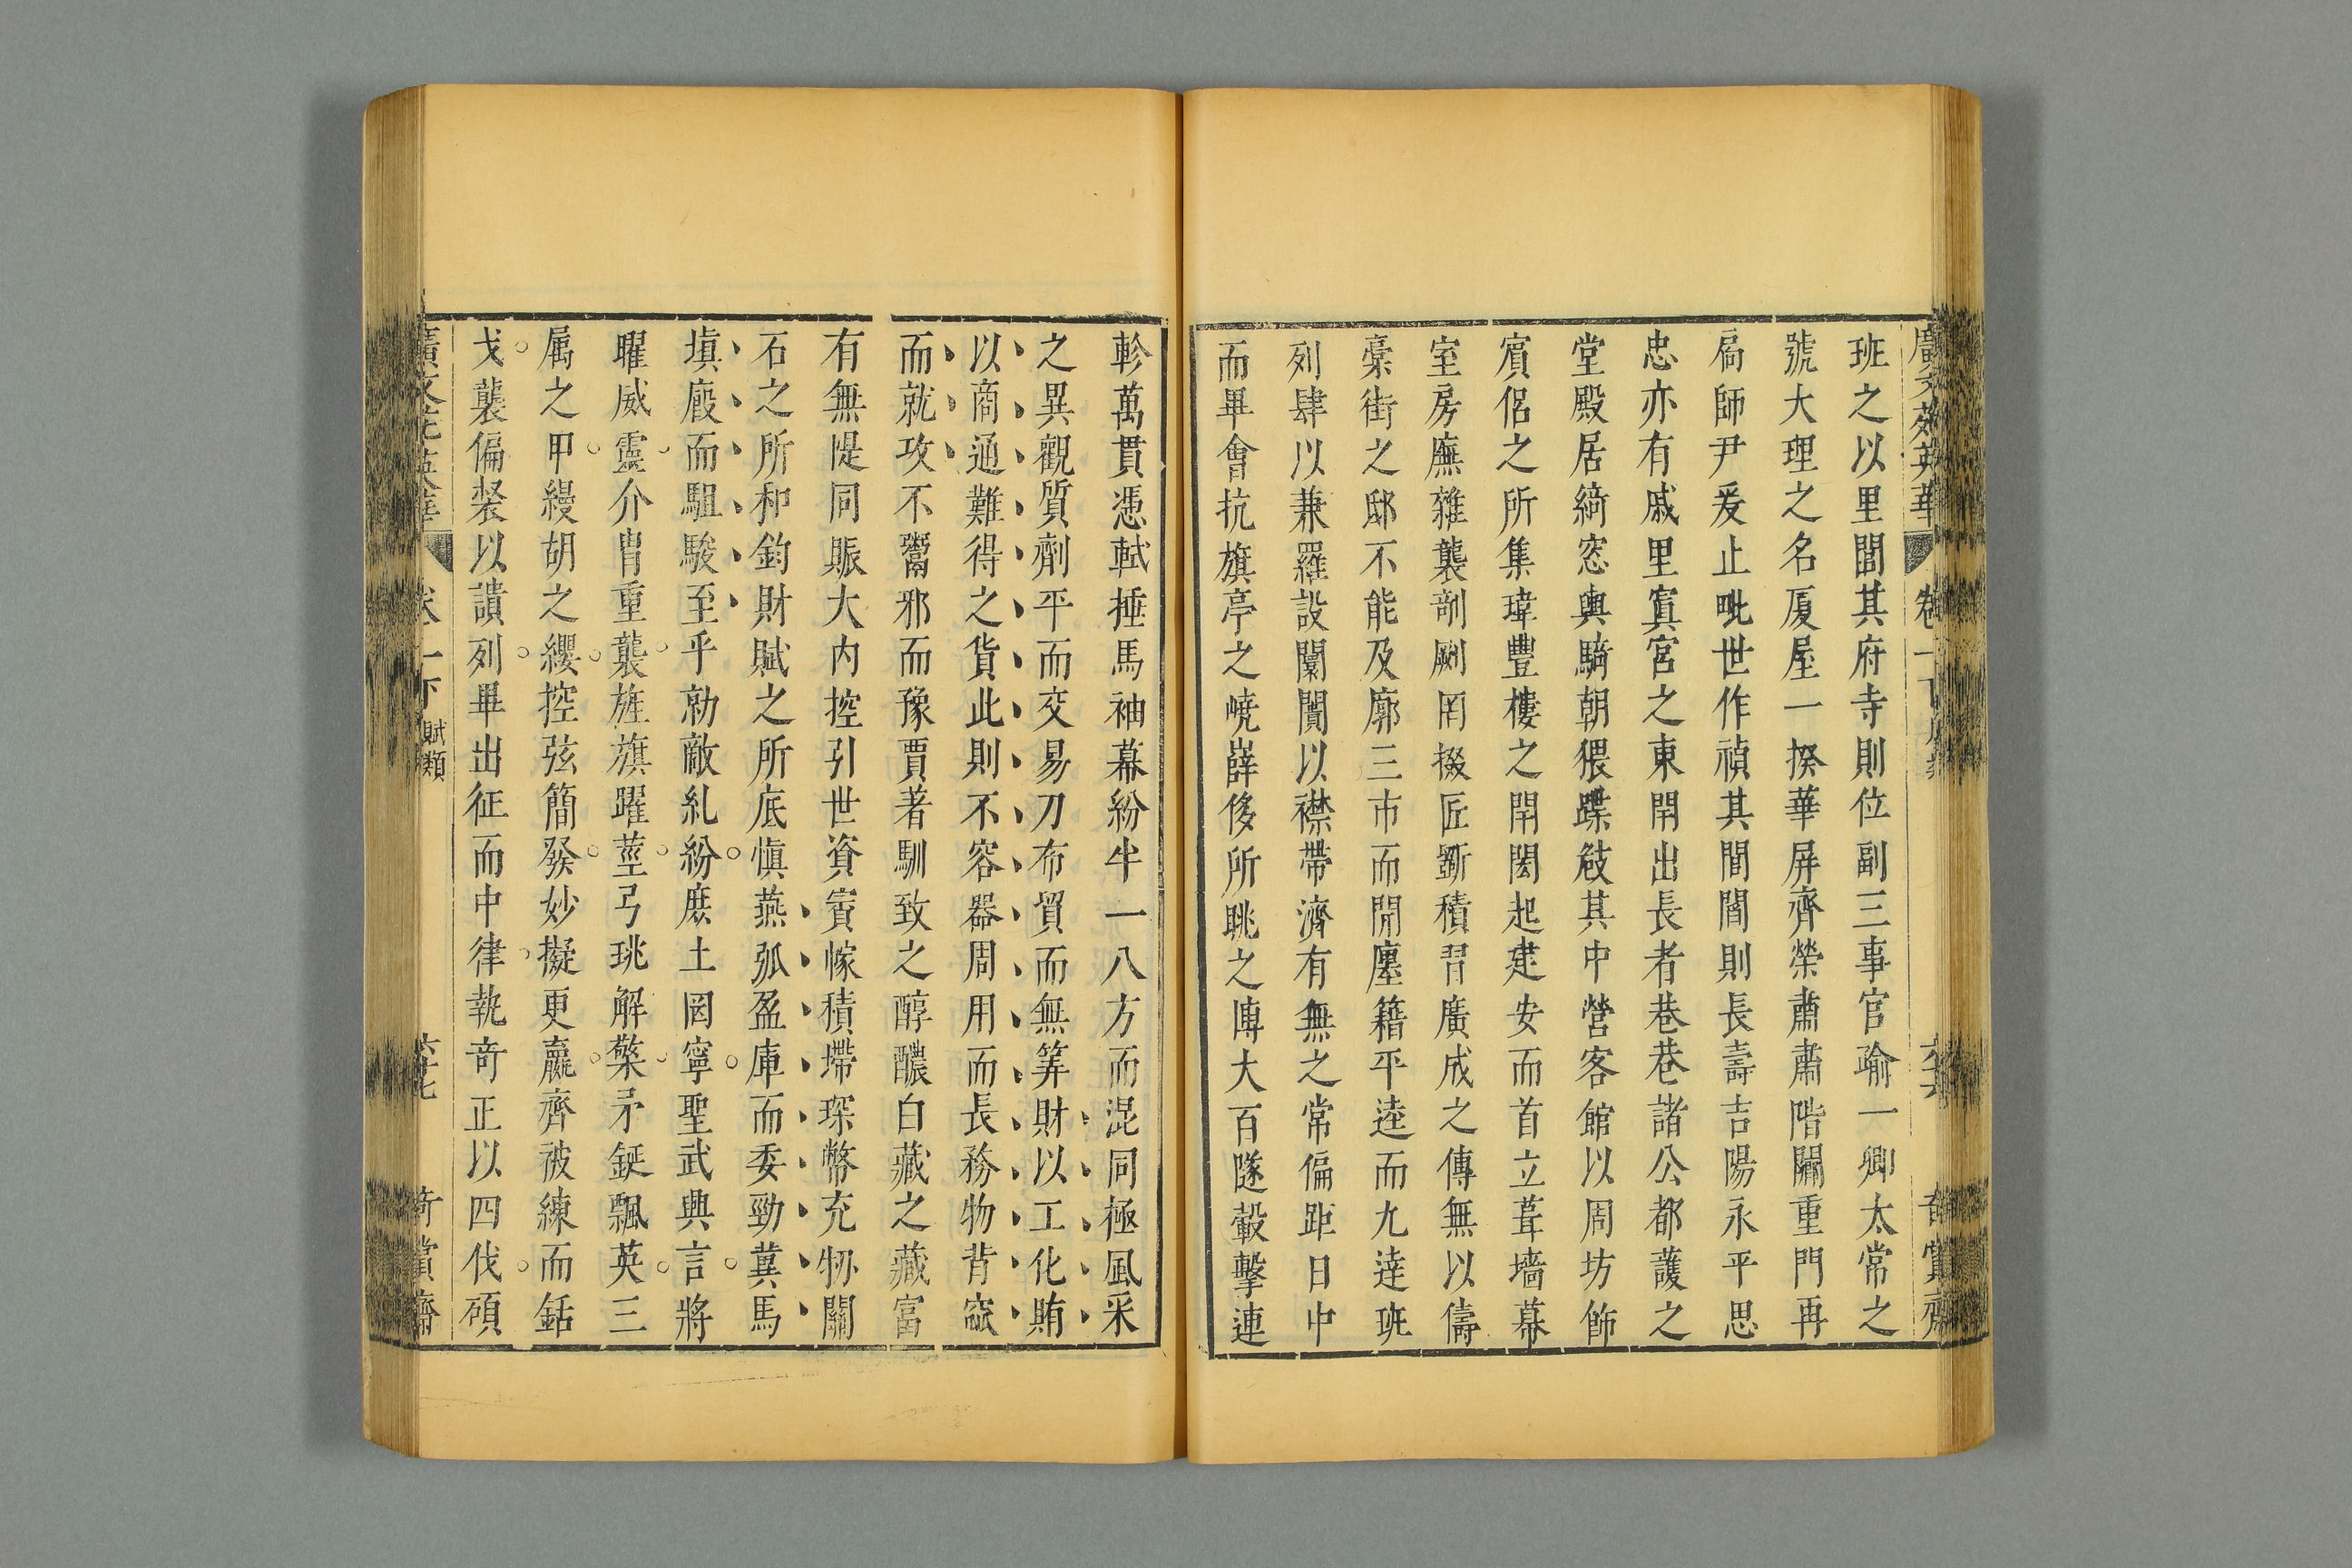 廣文苑英華 卷一下 賦類 六十六 奇賞齋
班之以里閭其府寺則位副三事官踰一卿太常之
號大理之名厦屋一揆華屏齊榮肅肅階䦨重門再
扃師尹爰止毗世作禎其閭閻則長壽吉陽永平思
忠亦有戚里寘宮之東閈出長者巷巷諸公都護之
堂殿居綺窓輿騎朝猥蹀敍其中營客館以周坊飾
賓侶之所集瑋豐樓之閈閎起建安而首立葺墻幕
室房廡雜襲剞劂罔掇匠斵積習廣成之傳無以儔
藁街之邸不能及廓三市而開廛籍平逵而九達班
列肆以兼羅設闤闠以襟帶濟有無之常偏距日中
而畢會抗旗亭之嶢嶭侈所眺之博大百隧轂擊連
軫萬貫憑軾捶馬袖幕紛半一八方而混同極風采
之異觀質劑平而交易刀布貿而無筭財以工化賄
以商通難得之貨此則不容器周用而長務物背窳
而就攻不鬻邪而豫賈著馴致之醇醲白藏之藏富
有無隄同賑大内控引世資賨幏積墆琛幣充牣關
石之所和鈞財賦之所底慎燕弧盈庫而委勁冀馬
塡廐而駔駿至乎勍敵糺紛庶土罔寧聖武興言將
曜威靈介胄重襲旌旗躍莖弓珧解檠矛鋋飄英三
属之甲縵胡之纓控弦簡發妙擬更羸齊被練而銛
戈襲偏裻以讃列畢出征而中律執奇正以四伐碩
廣文苑英華 卷一下 賦類 六十七 奇賞齋